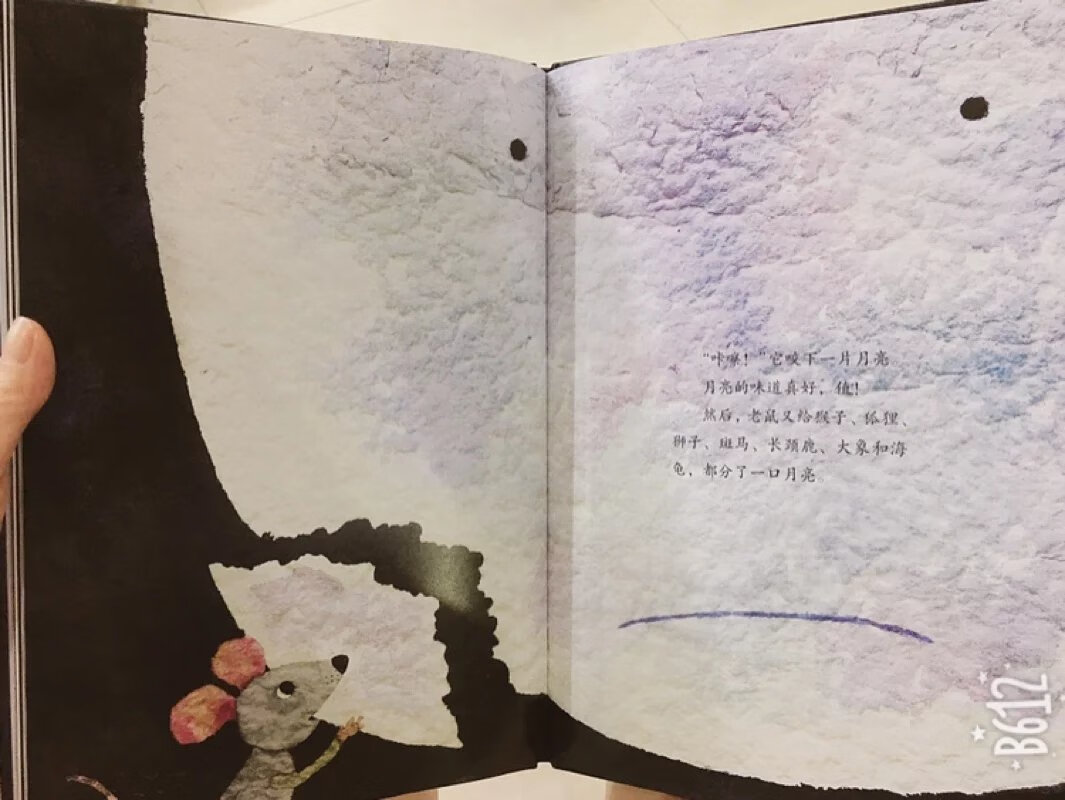 “咔嚓！”它咬下一片月亮
月亮的味道真好，值！
然后，老鼠又给猴子、狐狸、
狮子、斑马、长颈鹿、大象和海
龟，都分了一口月亮。
B612